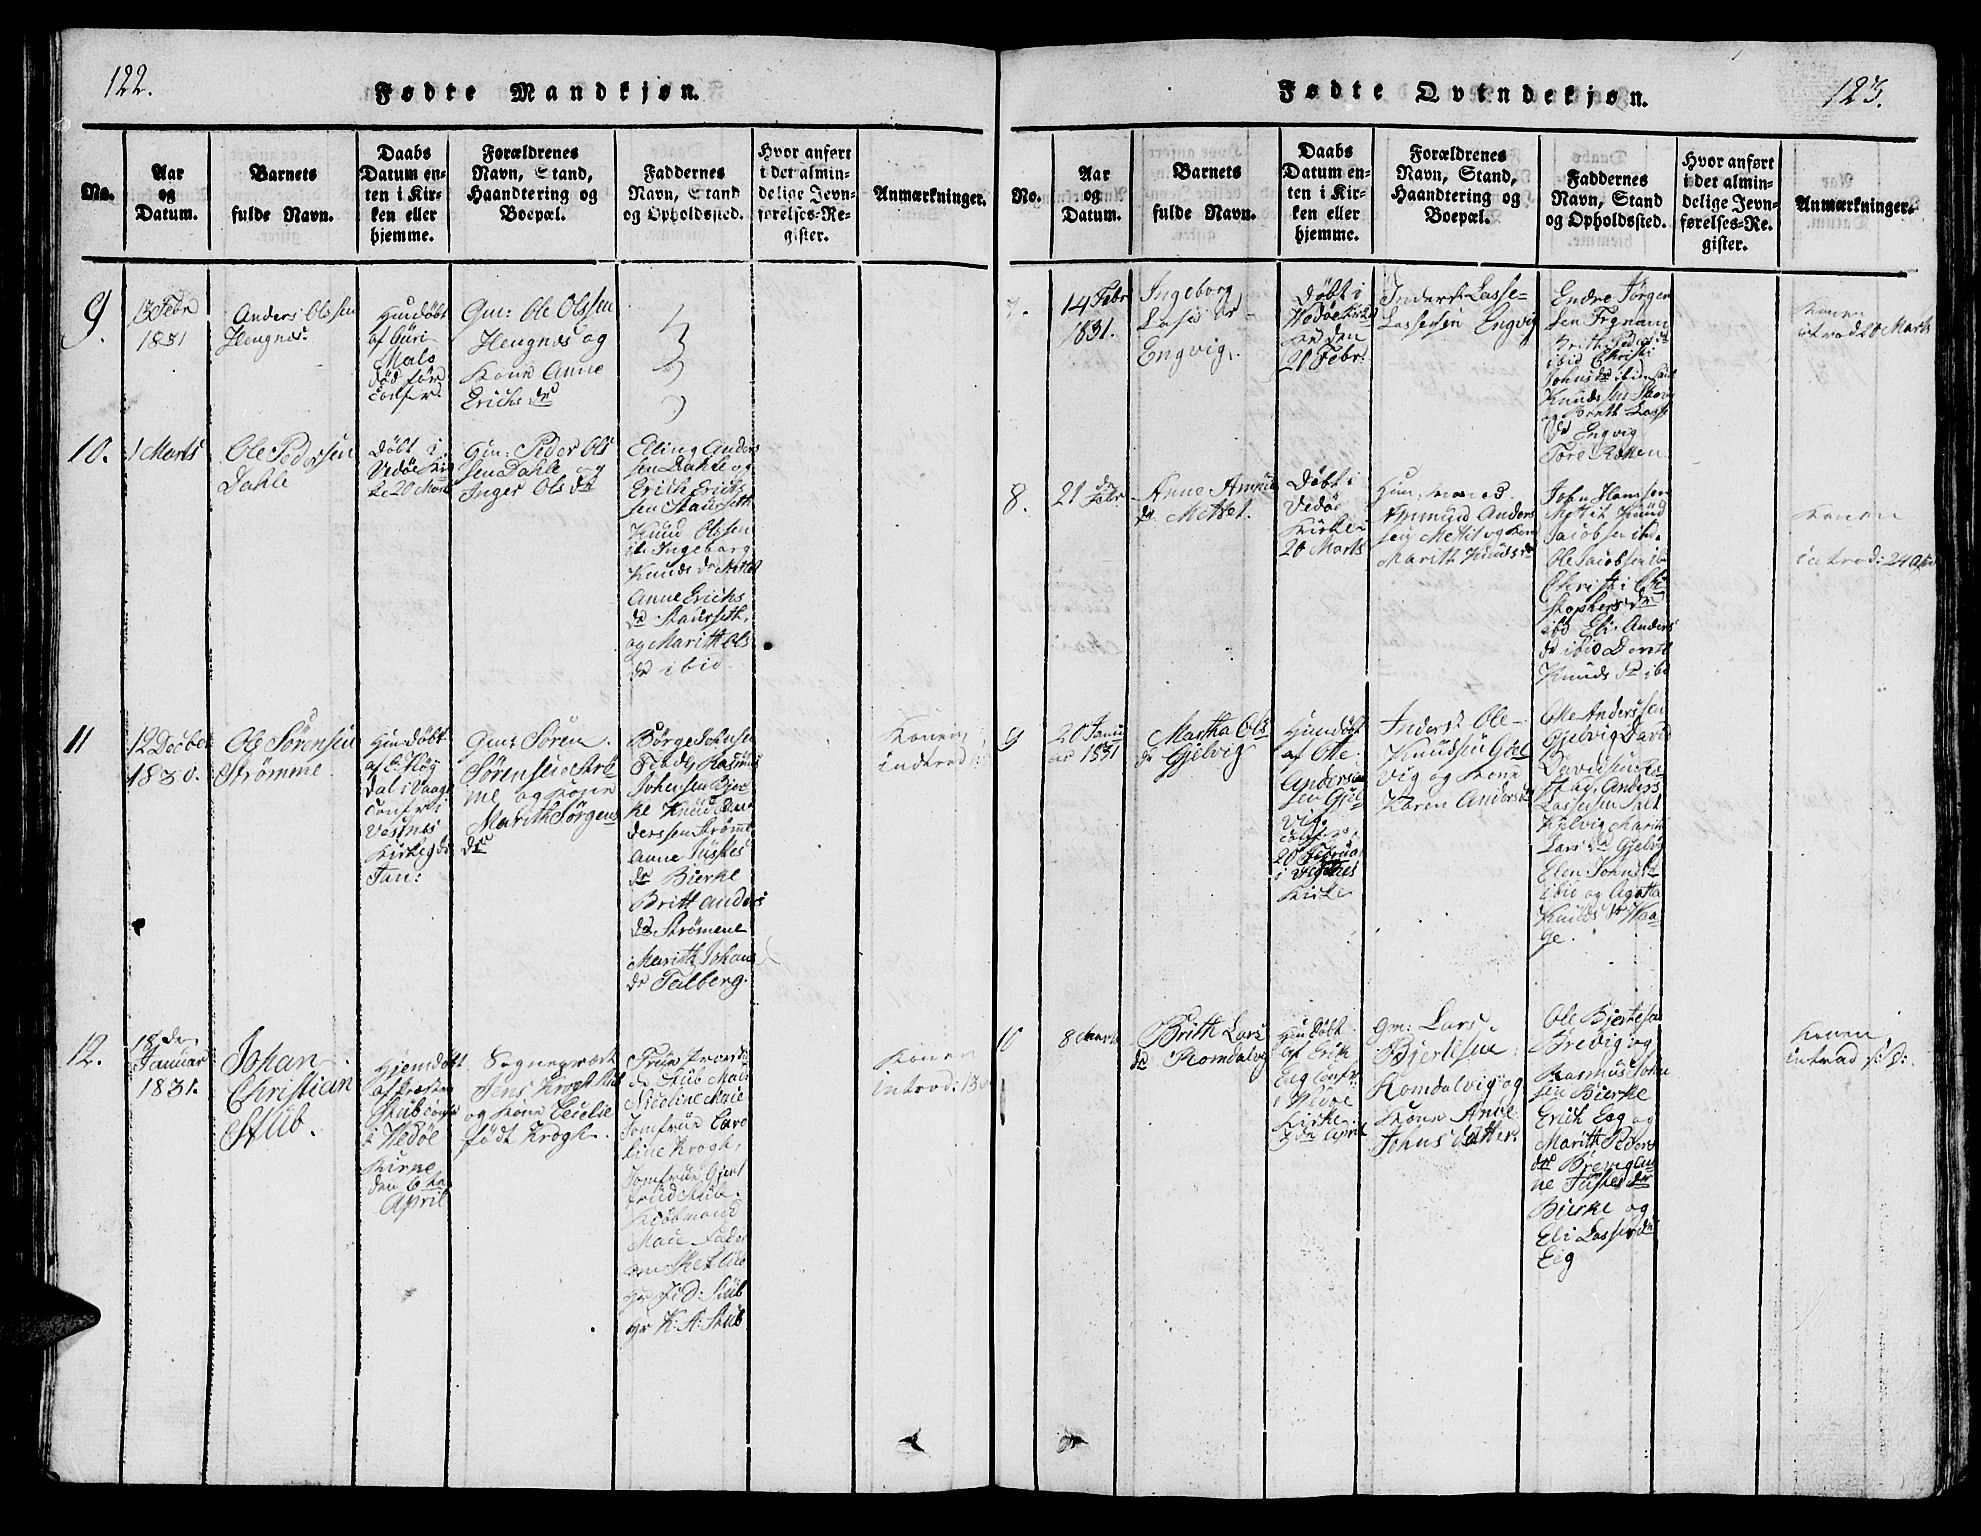 122.
Fødte Mandkjøn.
No.
Aar
og
Datum.
Barnets
fulde Navn.
Daabs
Datum en-
ten i Kir-
ken eller
hjemme.
Forældrenes
Navn, Stand,
Haandtering og
Boepæl.
Faddernes
Navn, Stand
og Opholdssted.
Hvor anført
i det almin-
delige Jevn-
førelses-Re-
gister.
Anmærkninger.
9.
13 Febr
1831
Anders Olssen
Hengnæs.
Hiemdøbt
af Guri
Mals
død før
Confr.
Gm: Ole Olssen
Hengnæs og
Kone Anne
Erichs dr
10.
1 Marts
Ole Pedersen
Dahle
Døbt i
Vedøe Kir
ke 20 Mart
Gm: Peder Ols
sen Dahle og
Inger Ols dr
Elling Anders
sen Dahle og
Erich Erichs
sen Staurseth
Knud Olssen
it. Ingeborg
Knuds dr Mettet
Anne Erichs
dr Staurseth,
og Marith Ols
dr ibid
11
12 Decber
1830.
Ole Sørensen
Strømme
Hiemdøbt
af
dal i Vaage
Confr i
Vestnæs
Kirke
Jan:
Gm: Søren
Sørensen Strø
me og Kone
Marith Jørgens
dr
Børge Johnsen
Rasmus
Johnsen Bjer
ke Knud An
derssen Strømme
Anne Justes
dr Bierke
Britt Anders
dr Strømene
Marith Johans
dr Talberg.
Konen
introd
12.
18 de
Januar
1831.
Johan
Christian
Stub.
Hjemdøbt
af Præsten
Stub Confr
i Vedøe
Kirke
den 6te
April
Sognepræst
Jens Krogh Stub
og Kone Cecilie
født Krogh.
Frue
Stub Mad
Nicoline
Jomfrue Caro
line Krogh,
Jomfrue Gjert
rud Stub.
Kiøbmand
Hr J: D: Stub
Hr K: A: Stub
Konen
introd: 13
123.
Fødte Qvindekjøn.
No.
Aar
og
Datum.
Barnets
fulde Navn.
Daabs
Datum en-
ten i Kir-
ken eller
hjemme.
Forældrenes
Navn, Stand,
Haandtering og
Boepæl.
Faddernes
Navn, Stand
og Opholdssted.
Hvor anført
i det almin-
delige Jevn-
førelses-Re-
gister.
Anmærkninger.
7.
14 Febr
1831.
Ingeborg
Lasse dr
Engvig.
Døbt i
Vedøe Kir
ke den
20 Febr.
Inderst Lasse
Lassesen Engvig
Endre Jørgen
sen
Brith Peders dr
ibid Christi
Johns dr ibid
Knuds
og Brith Lasse
dr Engvig
Konen
introd 20 Marts
8.
21 de
Febr
Anne Amund
dr Mettet.
Døbt i
Vedøe
Kirke
20 Marts
Amund Anders
sen Mettet og Kone
Marith Knuds dr
John Hanssen
Mettet Knud
Jacobsen ibd.
Ole Jacobsen ib
Christi Chri
stophers dr
ibd Eli Anders
dr ibid Dorth
Knuds dr ibd
Konen
introd: 24 Apr
9
20 Janu
ar 1831
Martha Ols
dr Gjelvig
Hiemdøbt
af Ole
Anders
sen Gjel
vig.
Confr.
20 Februar
i Vestnæs
Kirke
Inderst Ole
Knudsen Gjel
vig og Kone
Karen Anders dr
Ole Anderssen
Gjelvig David
Davidsen
Anders
Lassesen
Gjelvig Marit
Lars dr Gjelvig
Elen Johns dr
ibid og Agatha
Knuds dr Waa
ge.
10
8 Marts
Brith Lars
dr Romdalvig
Hiemdøbt
af Erik
Eeg Confr
i Vedøe
Kirke
3 de April
Gm: Lars
Bjertesen
Romdalvig og
Kone Anne
Johns datter
Ole Bjertesen
Brevig og
Rasmus John
sen Bierke
Erich Eeg og
Marith Peders
dr Brevig An
ne Justes dr
Bierke og
Eli Lasses dr
Eeg
Konen
introd s: D: